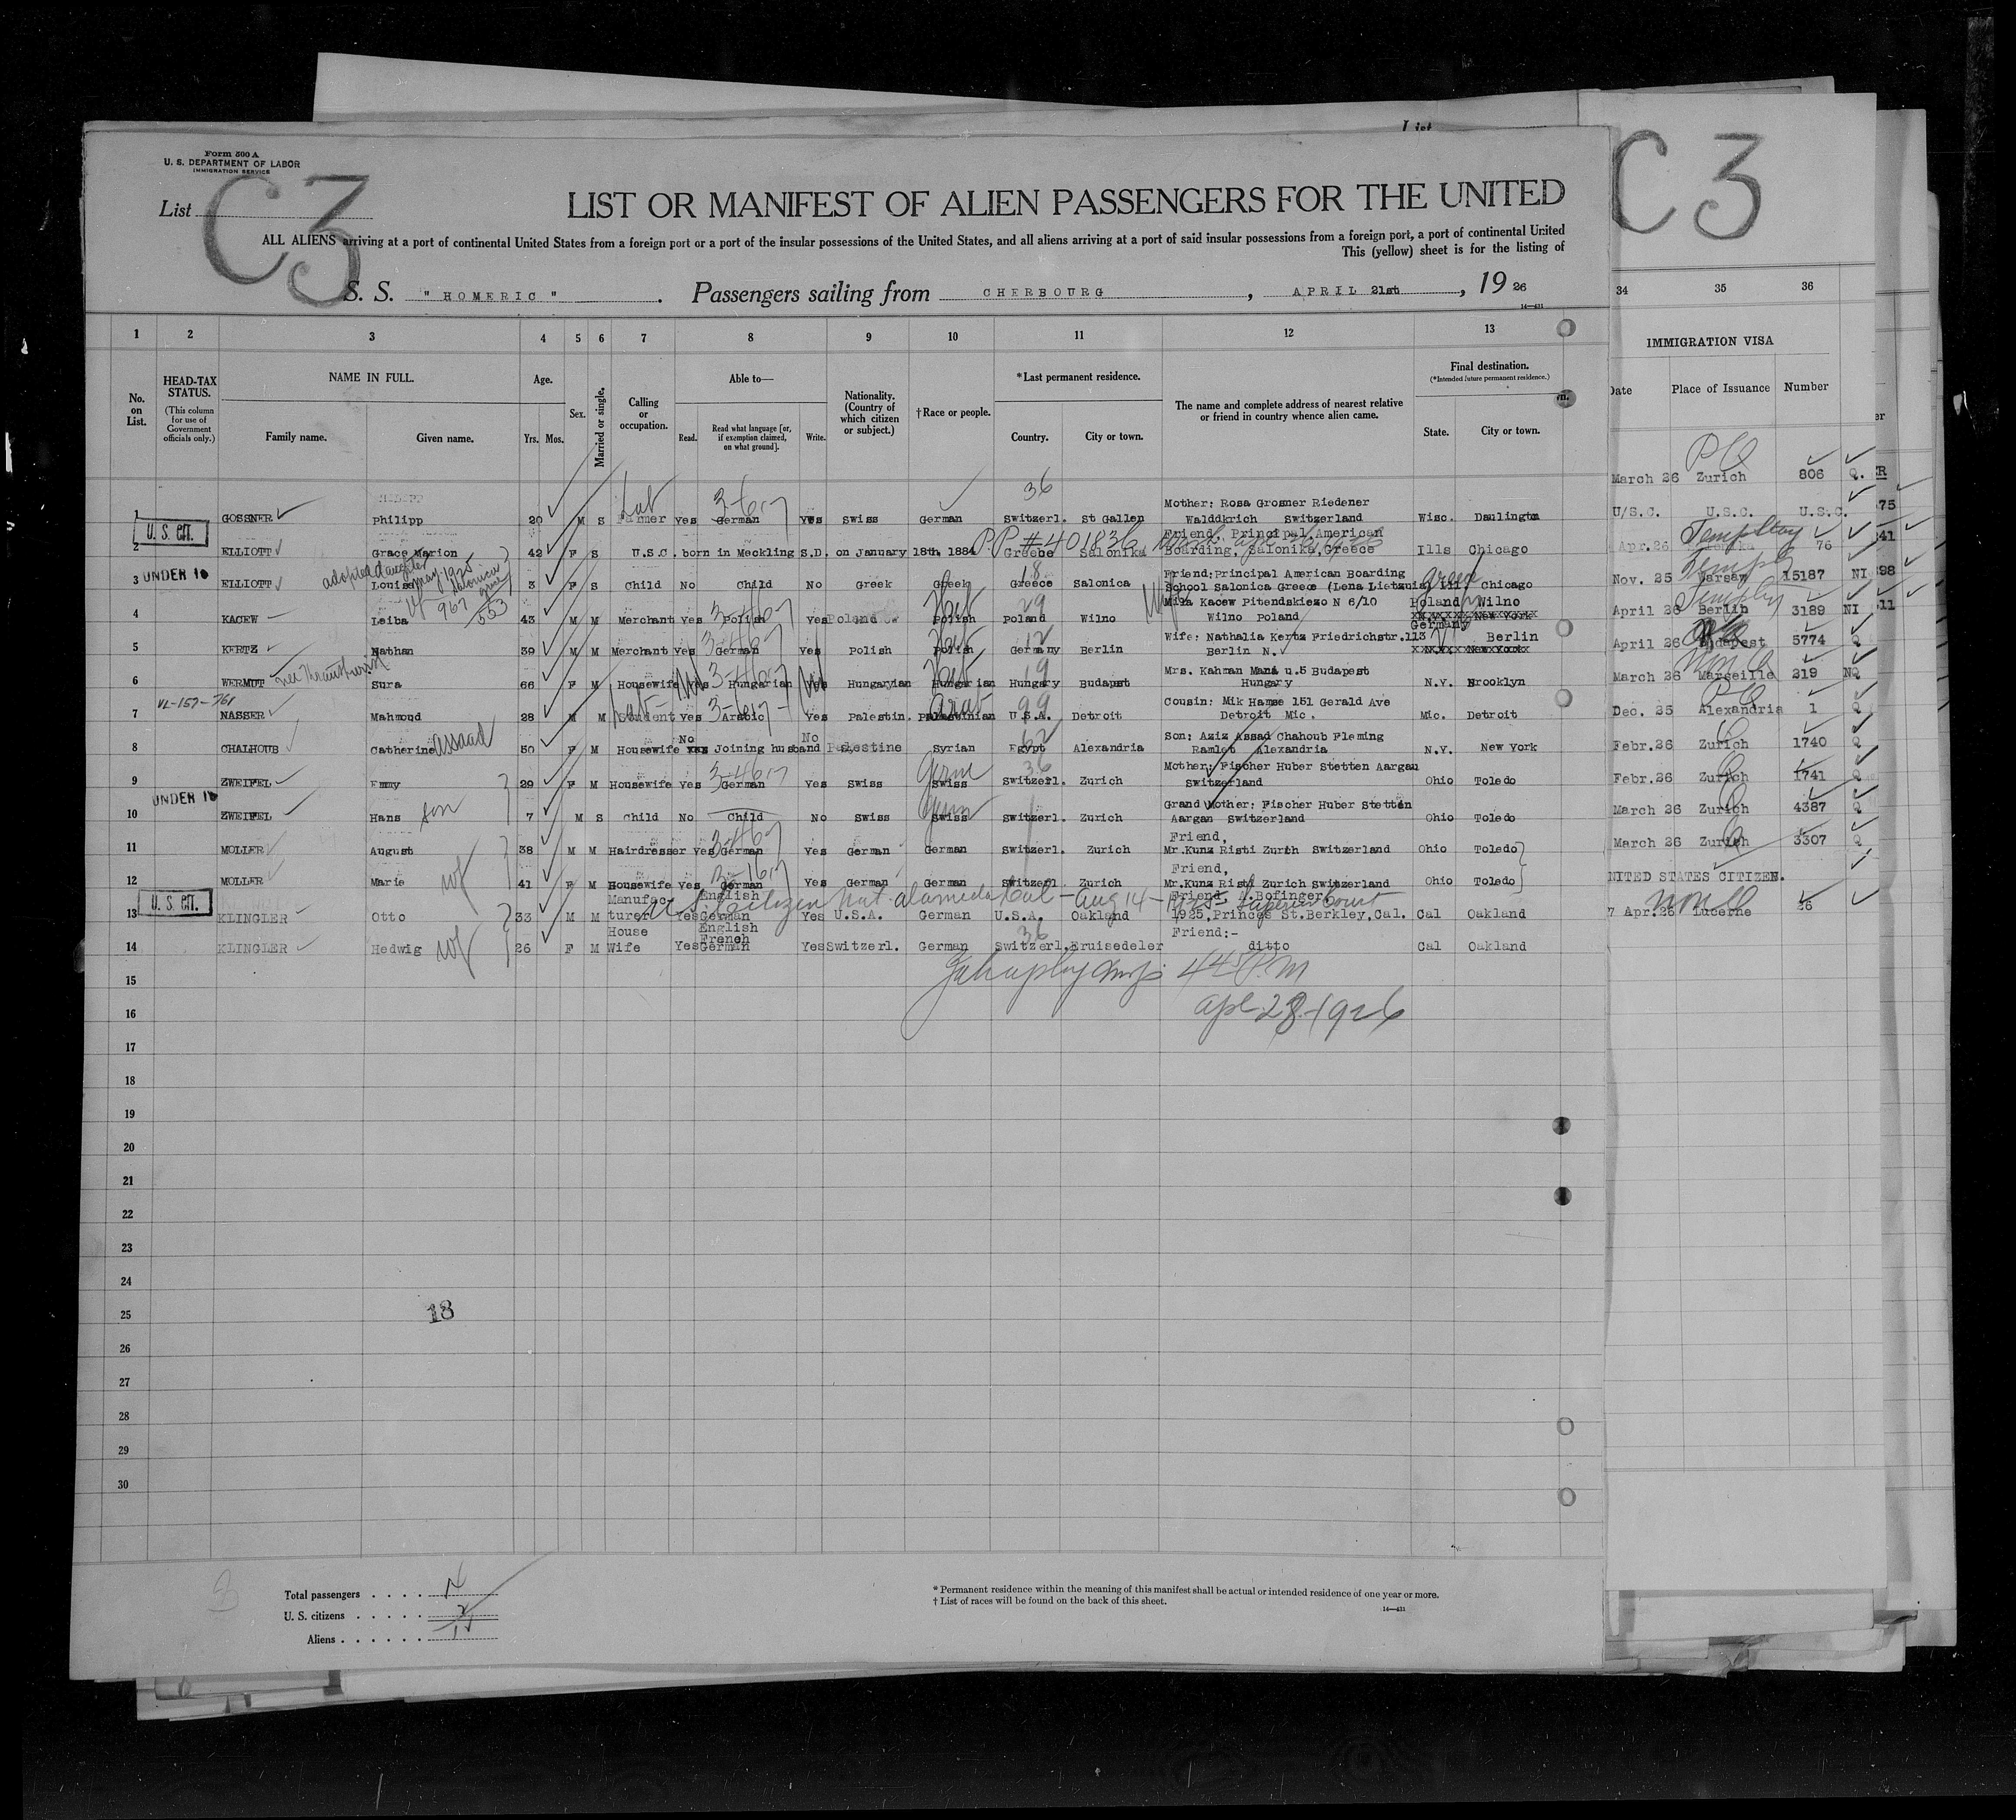 Form 500 A
U. S. DEPARTMENT OF LABOR
IMMIGRATION SERVICE
List
C3
LIST OR MANIFEST OF ALIEN PASSENGERS FOR THE UNITED
ALL ALIENS arriving at a port of continental United States from a foreign port or a port of the insular possessions of the United States, and all aliens arriving at a port of said insular possessions from a foreign port, a port of continental United
This (yellow) sheet is for the listing of
S. S. "HOMERIC" . Passengers sailing from CHERBOURG , APRIL 21st , 19 26
1 2 3 4 5 6 7 8 9 10 11 12 13
No. on List.
HEAD-TAX STATUS. (This column for use of Government officials only.)
NAME IN FULL. Family name. Given name.
Age. Yrs. Mos.
Sex.
Married or single.
Calling or occupation.
Able to— Read. Read what language [or, if exemption claimed, on what ground]. Write.
Nationality. (Country of which citizen or subject.)
†Race or people.
*Last permanent residence. Country. City or town.
The name and complete address of nearest relative or friend in country whence alien came.
Final destination. (*Intended future permanent residence.) State. City or town.
36
Mother: Rosa Grosner Riedener
1 GOSSNER Philipp 20 M S Farmer Yes German Yes Swiss German Switzerl. St Gallen Walddkrich Switzerland Wisc. Daulington
U. S. CIT.
Friend, Principal American
2 ELLIOTT Grace Marion 42 F S U.S.C. born in Meckling S.D. on January 18th 1884 PP #401836 Greece Salonika Boarding, Salonika, Greece Ills Chicago
adopted daughter
Friend:Principal American Boarding
3 UNDER 16 ELLIOTT Louisa 3 F S Child No Child No Greek Greek Greece Salonica School Salonica Greece (Lena Lietzuin) Ill. Chicago
Mila Kacew Pitendskiezo N 6/10 Poland Wilno
4 KACEW Leiba 43 M M Merchant Yes Polish Yes Poland Polish Poland Wilno Wilno Poland
Wife: Nathalia Kertz Friedrichstr.113 Germany Berlin
5 KERTZ Nathan 39 M M Merchant Yes German Yes Polish Polish Germany Berlin Berlin N.
Mrs. Kahman Mana u.5 Budapest
6 WERMUT Sura 66 F M Housewife Yes Hungarian Yes Hungaryian Hungarian Hungary Budapest Hungary N.Y. Brooklyn
VL-157-761
Cousin: Mik Hamse 151 Gerald Ave
7 NASSER Mahmoud 28 M M Student Yes Arabic Yes Palestin. Palestinian U.S.A. Detroit Detroit Mic. Mic. Detroit
Son: Aziz Assad Chahoub Fleming
8 CHALHOUB Catherine Assaad 50 F M Housewife No Joining husband No Palestine Syrian Egypt Alexandria Ramlet Alexandria N.Y. New York
Mother: Fischer Huber Stetten Aargau
9 ZWEIFEL Emmy 29 F M Housewife Yes German Yes Swiss Swiss Switzerl. Zurich Switzerland Ohio Toledo
UNDER 16
Grand Mother: Fischer Huber Stetten
10 ZWEIFEL Hans son 7 M S Child No Child No Swiss Swiss Switzerl. Zurich Aargan Switzerland Ohio Toledo
Friend,
11 MOLLER August 38 M M Hairdresser Yes German Yes German German Switzerl. Zurich Mr.Kunz Risti Zurih Switzerland Ohio Toledo
Friend,
12 MOLLER Marie wf 41 F M Housewife Yes German Yes German German Switzerl. Zurich Mr.Kunz Risti Zurich Switzerland Ohio Toledo
U. S. CIT.
Manufac- English Friend A.Bofinger
13 KLINGLER Otto 33 M M turer Yes German Yes U.S.A. German U.S.A. Oakland 1925,Princes St.Berkley,Cal. Cal Oakland
U.S. Citizen Nat. Alameda Cal - Aug 14 - 1925 Superior Court
House English French Friend:-
14 KLINGLER Hedwig wf 26 F M Wife Yes German Yes Switzerl. German Switzerl. Bruisedeler ditto Cal Oakland
15
4 45 P.M
16
Apl 28-1926
17
18
19
20
21
22
23
24
25
18
26
27
28
29
30
3
Total passengers . . . . .
U. S. citizens . . . . .
Aliens . . . . . .
* Permanent residence within the meaning of this manifest shall be actual or intended residence of one year or more.
† List of races will be found on the back of this sheet.
14—431
C3
34 35 36
IMMIGRATION VISA
Date Place of Issuance Number
March 26 Zurich 806 Q.
U/S.C. U.S.C. U.S.C.
Apr.26 76
Nov. 25 Warsaw 15187 NI
April 26 Berlin 3189 NI
April 26 Budapest 5774 Q
March 26 Marseille 219 NQ
Dec. 25 Alexandria 1 Q
Febr.26 Zurich 1740 Q
Febr.26 Zurich 1741 Q
March 26 Zurich 4387 Q
March 26 Zurich 3307 Q
NITED STATES CITIZEN.
7 Apr.26 Lucerne 26